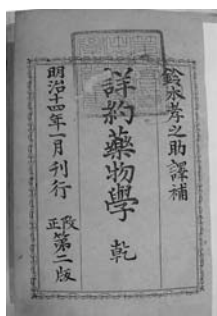 鈴木孝之助譯補
詳約藥物學 乾
明治十四年一月刊行 改正第二版